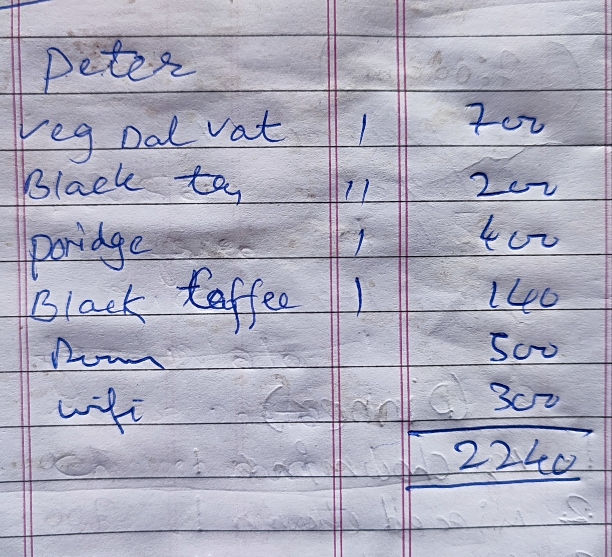 Peter
veg Dal vat 1 700
Black tea 11 200
poridge 1 400
Black Coffee 1 140
Room 500
wifi 300
2240